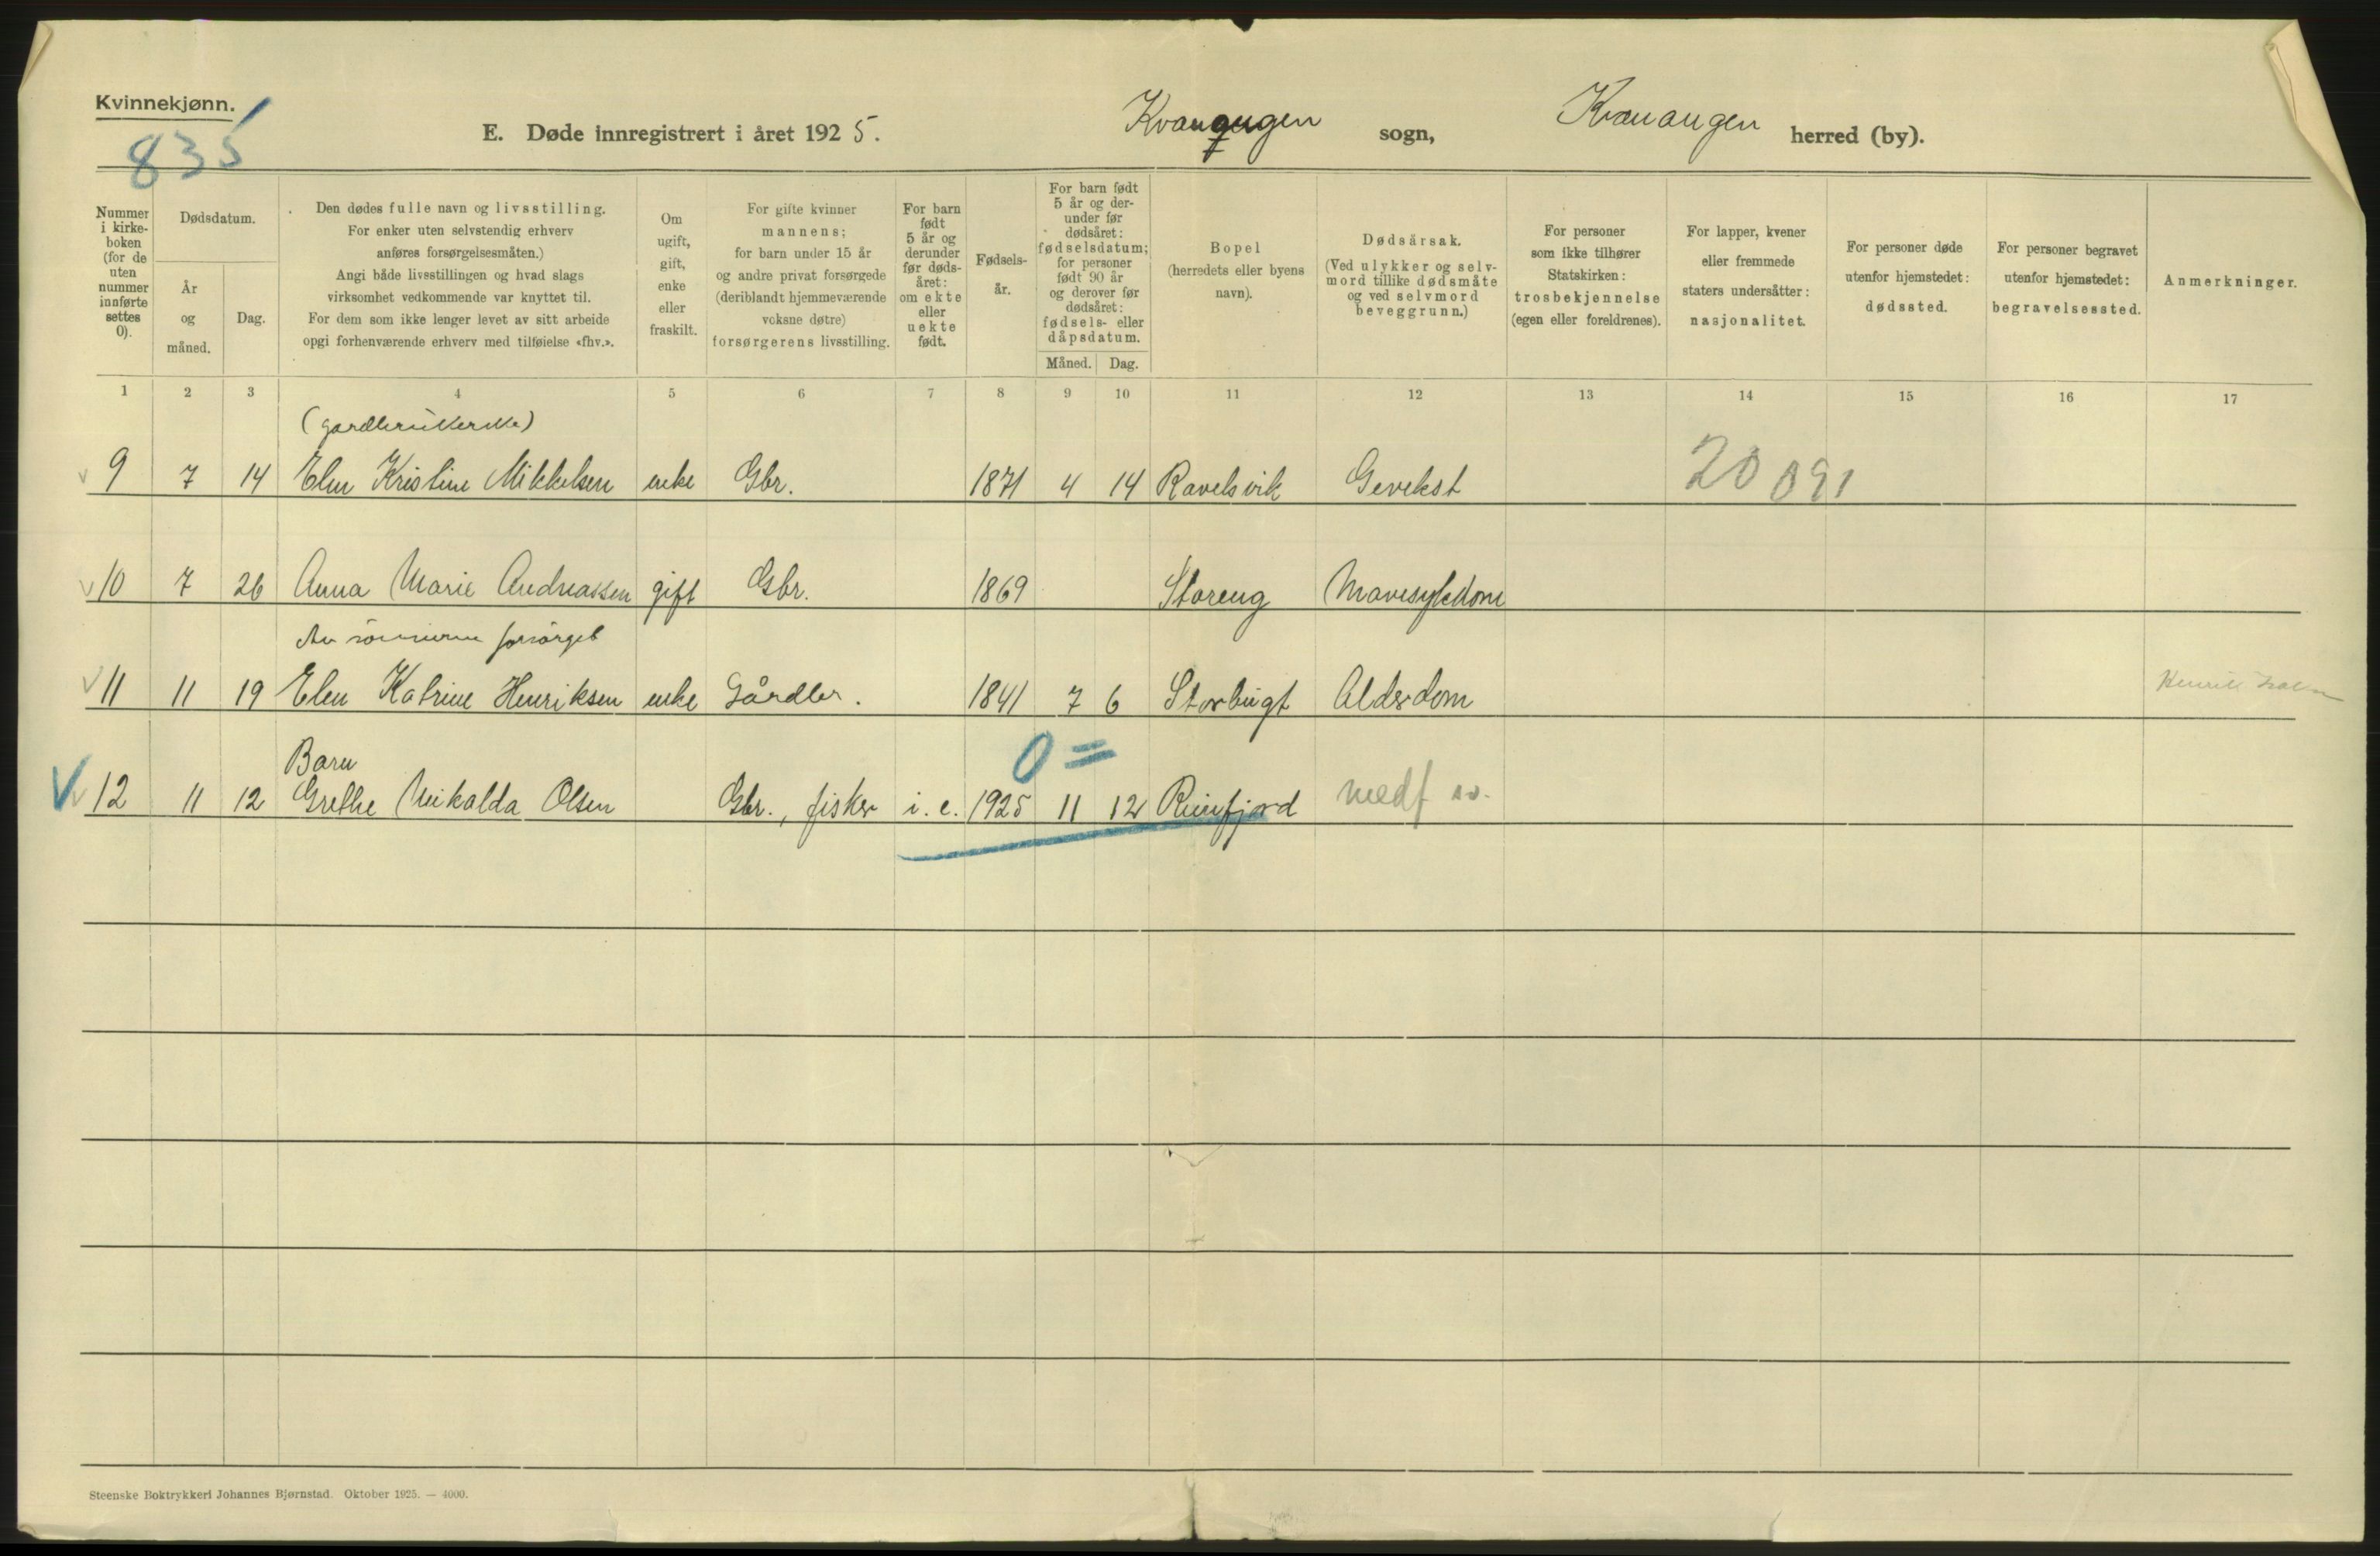 Kvinnekjønn.
835
E. Døde innregistrert i året 1925.
Kvænangen sogn,
Kvænangen herred (by).
Nummer i kirke-boken (for de uten nummer innførte settes 0).
Dødsdatum.
År og måned.
Dag.
Den dødes fulle navn og livsstilling.
For enker uten selvstendig erhverv
anføres forsørgelsesmåten.)
Angi både livsstillingen og hvad slags
virksomhet vedkommende var knyttet til.
For dem som ikke lenger levet av sitt arbeide
opgi forhenværende erhverv med tilføielse «fhv.».
Om ugift, gift, enke eller fraskilt.
For gifte kvinner
mannens;
for barn under 15 år
og andre privat forsørgede
(deriblandt hjemmeværende
voksne døtre)
forsørgerens livsstilling.
For barn født 5 år og derunder før døds-året: om ekte eller uekte født.
Fødsels-år.
For barn født
5 år og der-
under før
dødsåret:
fødselsdatum;
for personer
født 90 år
og derover før
dødsåret:
fødsels- eller
dåpsdatum.
Måned. Dag.
Bopel
(herredets eller byens
navn).
Dødsårsak.
(Ved ulykker og selv-
mord tillike dødsmåte
og ved selvmord
beveggrunn.)
For personer
som ikke tilhører
Statskirken:
trosbekjennelse
(egen eller foreldrenes).
For lapper, kvener
eller fremmede
staters undersåtter:
nasjonalitet.
For personer døde
utenfor hjemstedet:
dødssted.
For personer begravet
utenfor hjemstedet:
begravelsessted.
Anmerkninger.
1 2 3 4 5 6 7 8 9 10 11 12 13 14 15 16 17
(gardbrukerske)
9 7 14 Elen Kristine Mikkelsen enke Gbr. 1871 4 14 Ravelsvik Gevekst 20091
10 7 26 Anna Marie Andreassen gift Gbr. 1869 Storeng Mavesykdom
Av sønnerne forsørget
11 11 19 Elen Katrine Henriksen enke Gårdbr. 1841 7 6 Storbugt Alderdom Henrik
Barn 0 =
12 11 12 Grethe Mikalda Olsen Gbr., fisker i. e. 1925 11 12 Reinfjord medf sv.
Steenske Boktrykkeri Johannes Bjørnstad. Oktober 1925. — 4000.